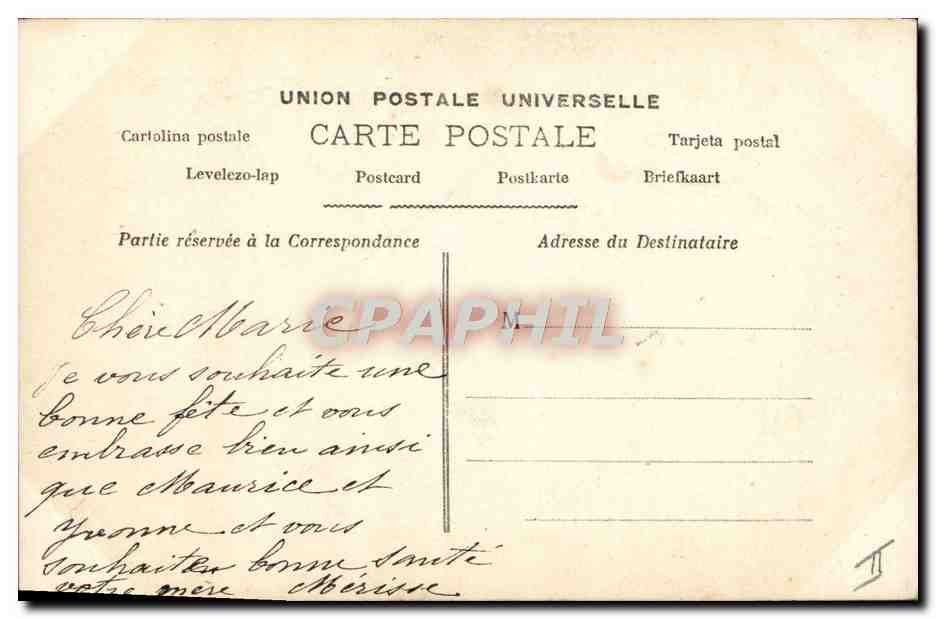 UNION POSTALE UNIVERSELLE
Cartolina postale CARTE POSTALE Tarjeta postal
Levelezo-lap Postcard Postkarte Briefkaart
Partie réservée à la Correspondance
Adresse du Destinataire
Chère Marie
Je vous souhaite une
bonne fête et vous
embrasse bien ainsi
que Maurice et
Yvonne et vous
souhaiten bonne santé
votre mère Mérisse
M
CPAPHIL